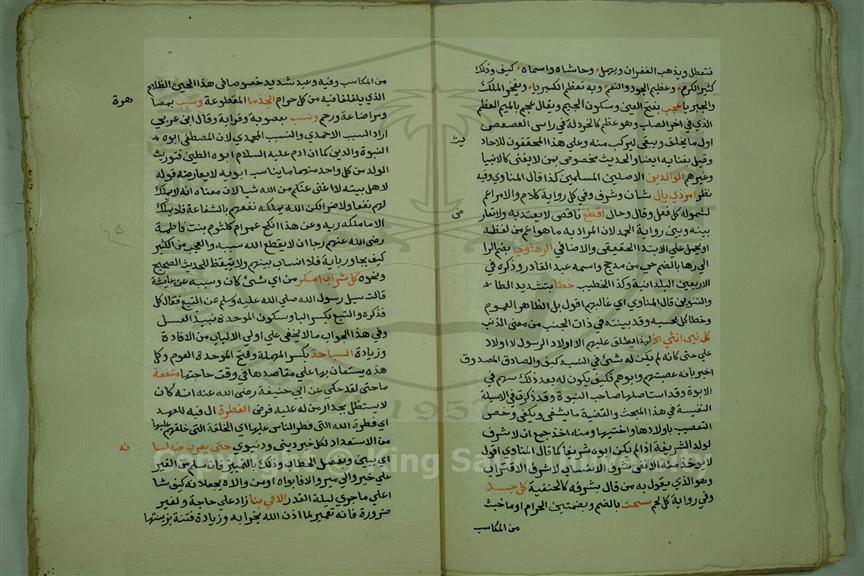 تتعطل ويذهب الغفران وحاشاه واسماه كيف وذلك
كثير الكرم وعظيم الجود والنعم وبه تعظم الكبرياء وبفخر الملك
عجب بفتح العين وسكون الجيم ويقال عجم بالميم العظم
الذي في اخر الصلب وهو عظم كالخردلة في راس العصعص
اول ما يخلق ويبقى ليركب منه وعلى هذا المحققون
وقيل بفنايه ايضا والحديث مخصوص بمن لا يفنى كالانبيا
وغيرهم الوالدين الاصليين المسلمين كذا قال المناوي وفيه
نظر امر ذي بال شان وشرف وفي كل رواية كلام والامر اعم
لشموله كل فعل وقال وحال اقطع ناقص لا يعتد به ولا تغاير
بينه وبين رواية الحمد لان المراد به ما هو اعم من لفظه
او يحمل على الابتداء الحقيقي والاضافي الرهاوي بضم الرا
الى رها بالضم حي من مذحج واسمه عبد القادر وذكره في
الاربعين البلدانية وكذا الخطيب خطا بتشديد الطاء
والتنوين قال المناوي اي غالبهم اقول بل الظاهر العموم
وخطا كل بحسبه وقد بينته في ذات الجنب من معنى الذنب
كل بني انثى الخ
على حتى كانه لم يكن له شئ في النسبة كيف والصادق المصدوق
اخبر بانه عصبتهم وابوهم فكيف يكون له بعد ذلك سهم في
الابوة وقد استاصلها صاحب النبوة وقد ذكرت في الاسيلة
النفيسة في هذا المبحث والقضية ما يشفي ويكفي وخص
التعصيب باولادها واختيها ومنه اخذ جمع ان لا شرف
لولد الشريفة اذا لم يكن ابوه شريفا كما قال المناوي اقول
لا يوخذ منه الا نفي شرف الانتساب لا شرف الاقتراب
وهو الذي يقول به من قال بشرفه كالحنفية كل جسد
وفي رواية كل لحم سحت بالضم وبضمتين الحرام او ما خبث
من المكاسب
من المكاسب وفيه وعيد شديد خصوصا في هذا الحين الظلام
الذي فيه من كل حرام الجذما المقطوعة وسبب
ورضاعة ورحم ونسب بعصوبة وقرابة وقال ابن عربي
اراد السبب الاحمدي والنسب المحمدي لان المصطفى ابوه
النبوة والدين كما ان ادم عليه السلام ابوه الطين فتورث
الولد من كل واحد منهما ما يناسب ابويه لا يعارضه قوله
لاهل بيته لا اغني عنكم من الله شيا لان معناه انه لا يملك
لهم نفعا ولا ضرا لكن الله يملكه نفعهم بالشفاعة فلا يملك
الا ما ملكه ربه وعن هذا نكح عمر ام كلثوم بنت فاطمة
رضي الله عنهم رجا ان لا يقطع الله سببه والعجب من الكثير
كيف يجاور باية فلا انساب بينهم ولا يتيقظ للحديث الصحيح
ونحوه كل شراب اسكر من اي شئ كان وسببه عن عايشة
قالت سيل رسول الله صلى الله عليه وسلم عن البتع فقال كل
فذكره والبتع بكسر البا وسكون الموحدة نبيذ العسل
وفي هذا الجواب ما لا يخفى على اولي الالباب من الافادة
وزيادة السباحة بكسر المهملة وفتح الموحدة العوم وكل
هذه يستعان بها على مقاصدها في وقت حاجتها منفعة
ما حتى لقد حكي عن ابي حنيفة رضي الله عنه انه كان
لا يستظل بجدار من له عليه قرض الفطرة ال فيه للعهد
اي فطرة الله التي فطر الناس عليها اي الخلقة التي خلقهم عليها
من الاستعداد لكل خير ديني ودنيوي حتى يعرب عنه لسا
اي يبين ويفصل الخطاب وذلك بالتمييز فان سلم من الغير
على خير والى مير والا فابواه او من والاه يحملانه كيف شا
اعلى ما جرى ليلة القدر الا في بنا زاد على حاجة ولغير
ضرورة فانه تعمير لما اذن الله بخرابه وزيادة فتنة بزينتها
هرة
نه
copyright © King Saud University
1957